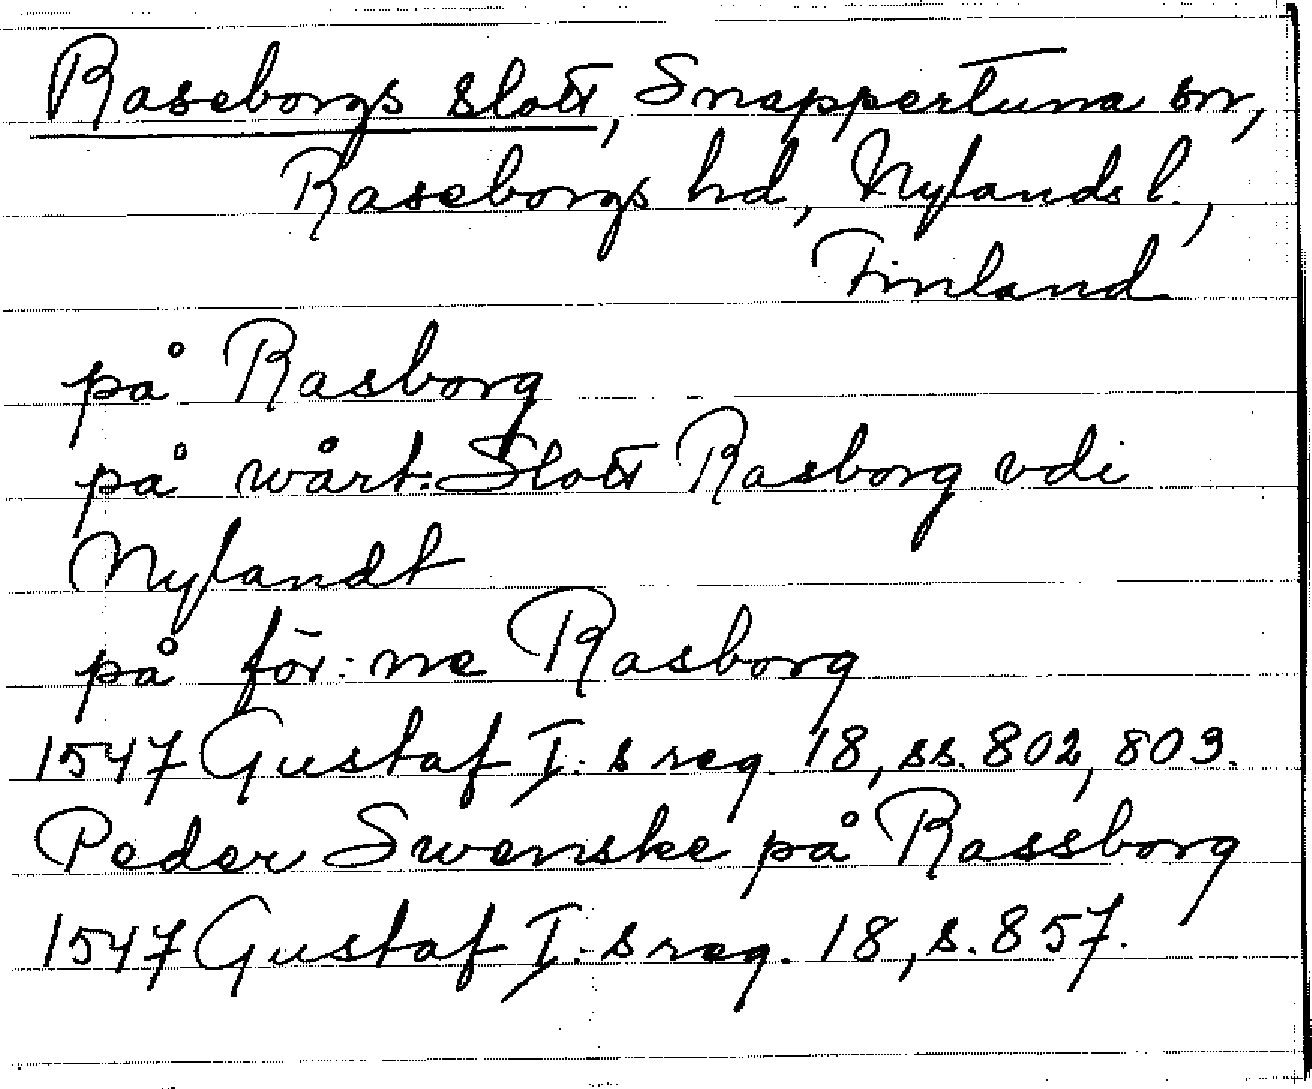 Raseborgs slott, Snappertuna sn,
Raseborgs hd, Nylands l.,
Finland
på Rasborg
på wårt: Slott Rasborg vdi
Nylandt
på för:ne Rasborg
1547 Gustaf I:s reg. 18, ss. 802, 803.
Peder Swenske på Rassborg
1547 Gustaf I:s reg. 18, s. 857.